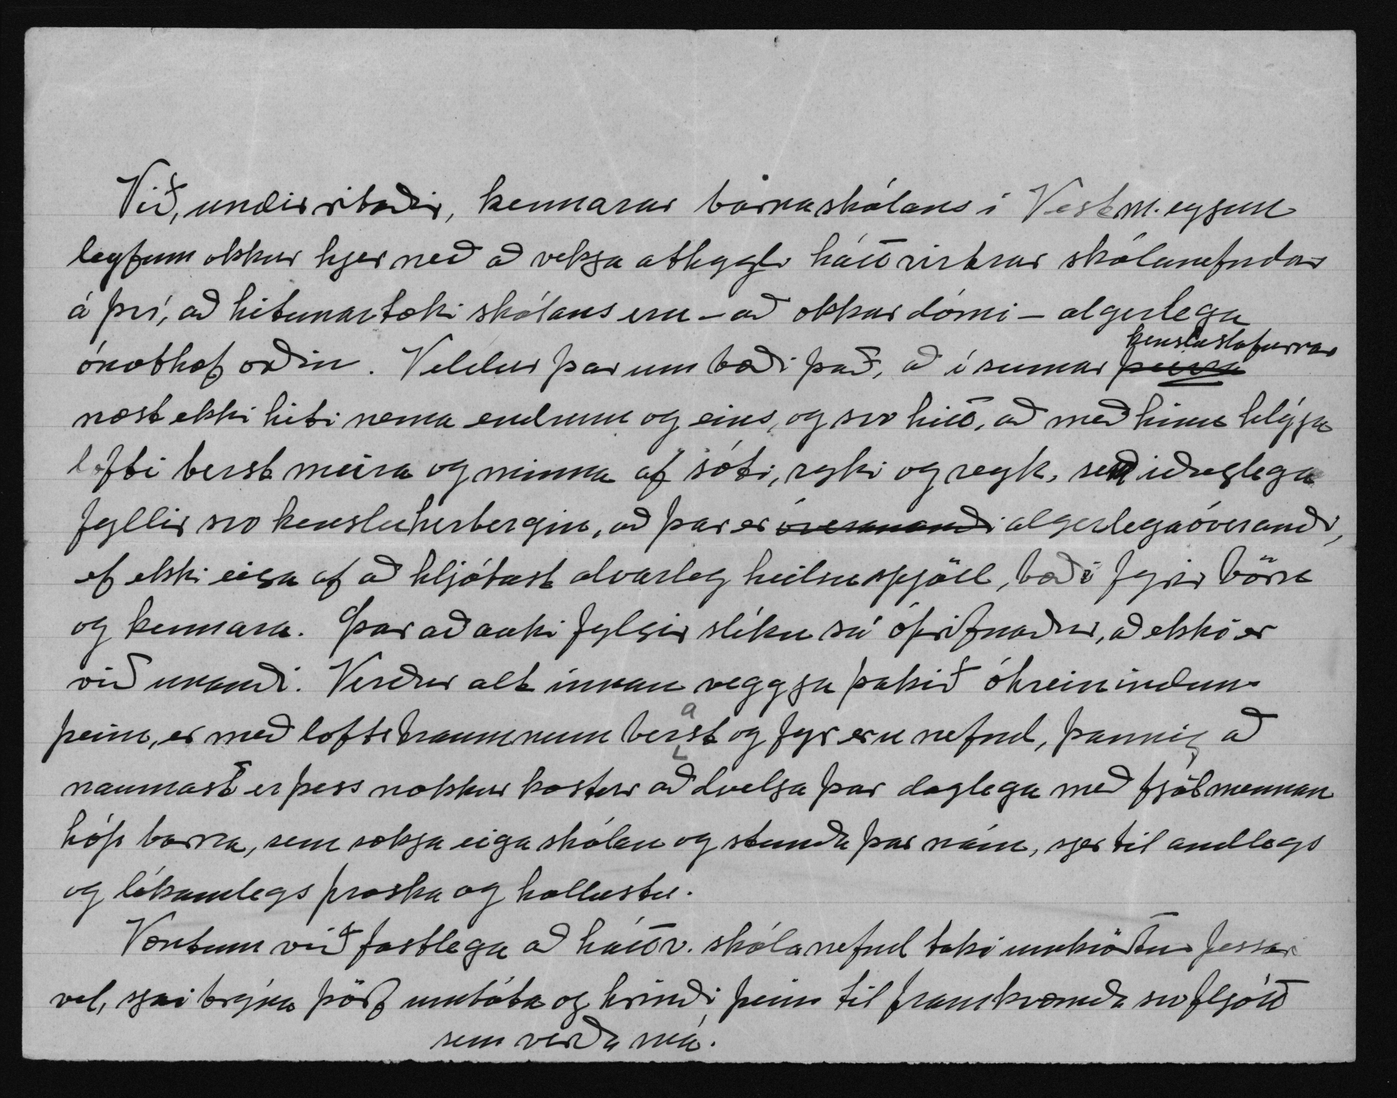 Við, undirritaðir, kennarar barnaskólans í Vestm.eyjum
leyfum okkur hjermeð að vekja athygli háttvirtrar skólanefndar
á því, að hitunartæki skólans eru – að okkar dómi – algerlega
ónothæf orðin. Veldur þar um bæði það, að í sumar kenslustofurnar
næst ekki hiti nema endrum og eins, og svo hitt, að með hinu hlýja
lofti berst meira og minna af sóti, ryki og reyk, sem iðuglega
fyllir svo kensluherbergin, að þar er óverunandi algerlega óverandi,
ef ekki eiga af að hljótast alvarleg heilsuspjöll, bæði fyrir börn
og kennara. Þar að auki fylgir slíku sá óþrifnaður, að ekki er
við unandi. Verður alt innan veggja þakið óhreinindum
þeim, er með loftstraumnum berast og fyr eru nefnd, þannig að
naumast er þess nokkur kostur að dvelja þar daglega með fjölmennan
hóp barna, sem sækja eiga skólan og stunda þar nám, sjer til andlegs
og líkamlegs þroska og hollustu.
Væntum við fastlega að háttv. skólanefnd taki umkvörtun þessari
vel, sjái brýna þörf umbóta og hrindi þeim til framkvæmda svo fljótt
sem verða má.